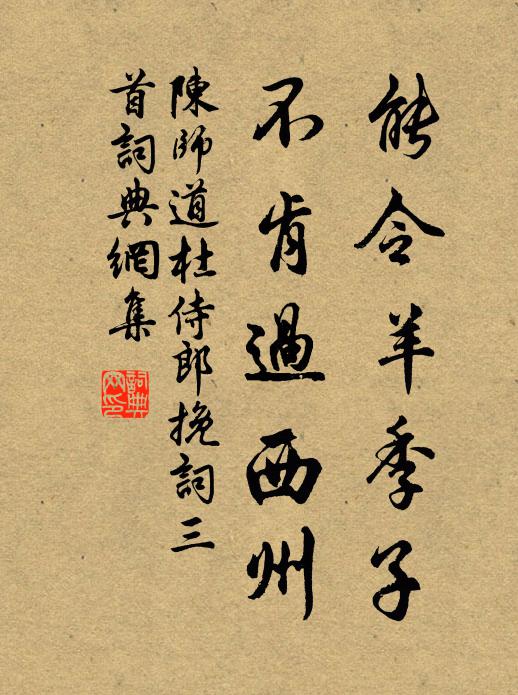 能令羊季子
不肯過西州
陳師道杜侍郎挽詞三
首詞典網集
詞典
网印